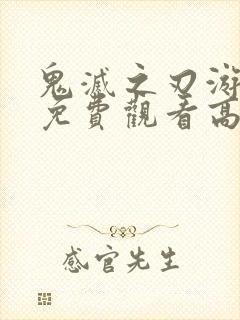 鬼滅之刃游
免費觀看高
感官先生